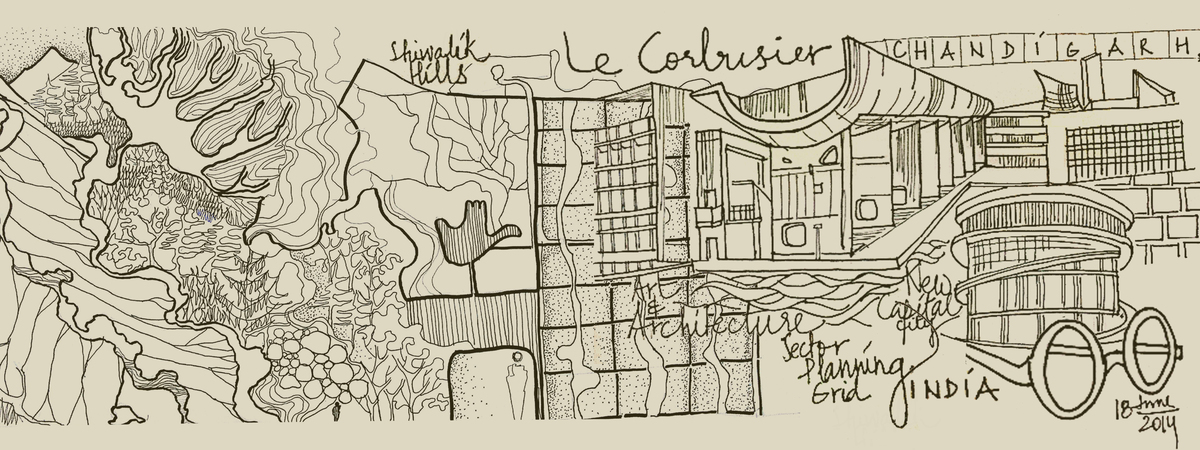 Shiwalik
Hills
Le Corbusier
CHANDIGARH
Art
&
Architecture
New
Capital
City
Sector
Planning
Grid
INDIA
18 June
2014